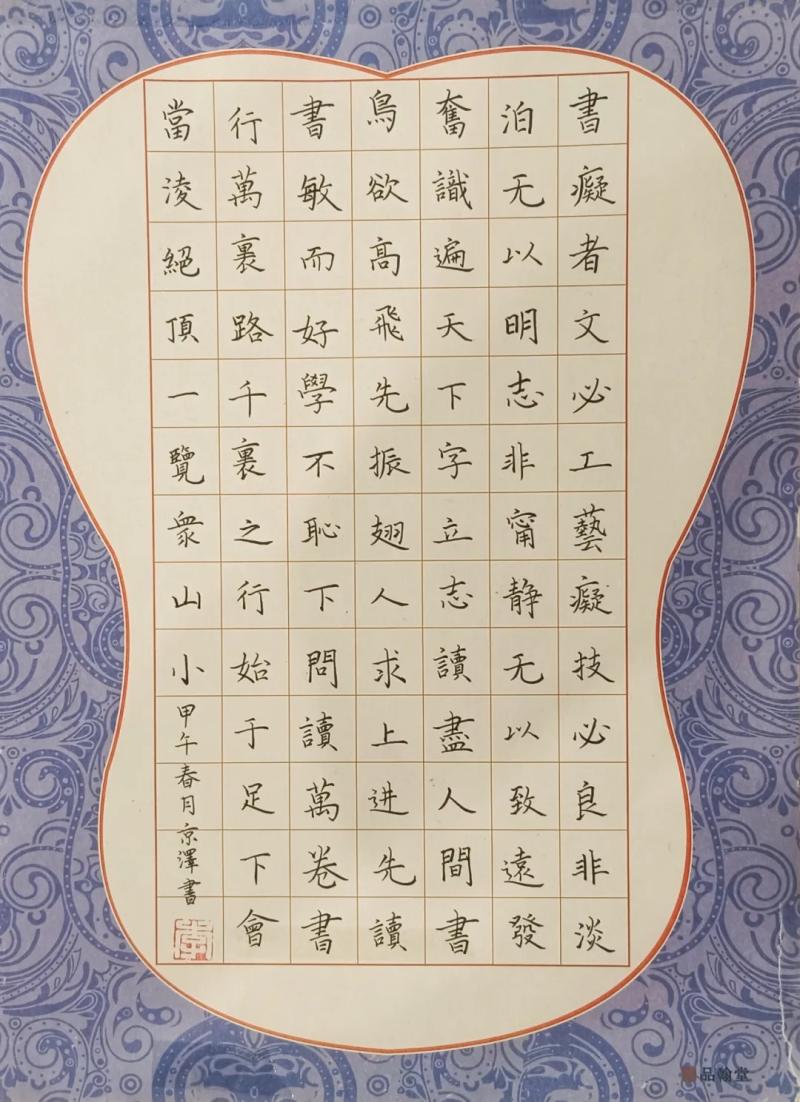 書癡者文必工藝癡技必良非淡
泊无以明志非甯静无以致遠發
奮識遍天下字立志讀盡人間書
鳥欲高飛先振翅人求上进先讀
書敏而好學不恥下問讀萬卷書
行萬裏路千裏之行始于足下會
當淩絕頂一覽衆山小甲午春月京澤書
品翰堂